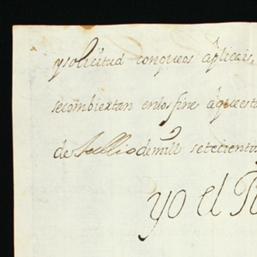 y solicitud conque os aplicais,
se combiertan en los fines áque está
de Jullio de mill setecient
yo el R